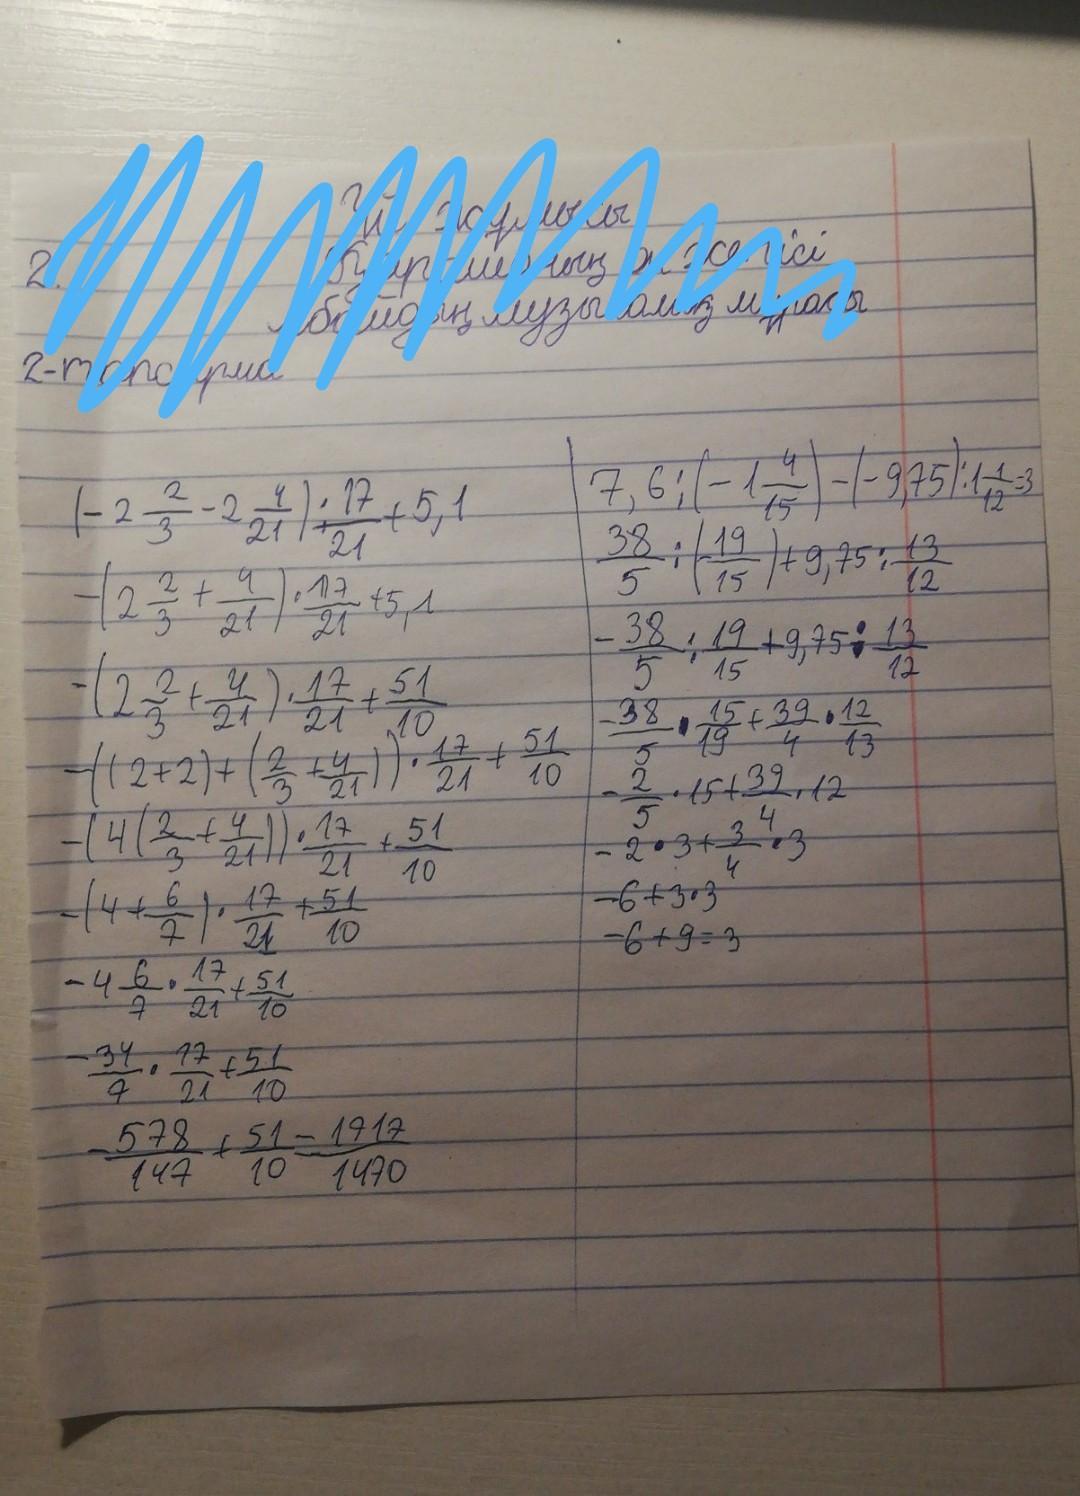 Үй жұмысы
2.
2-тапсырма
(-2 2/3 - 2 4/21) · 17/21 + 5,1
-(2 2/3 + 4/21) · 17/21 + 5,1
-(2 2/3 + 4/21) · 17/21 + 51/10
-((2+2)+(2/3 + 4/21)) · 17/21 + 51/10
-(4(2/3 + 4/21)) · 17/21 + 51/10
-(4 + 6/7) · 17/21 + 51/10
-4 6/7 · 17/21 + 51/10
-34/7 · 17/21 + 51/10
-578/147 + 51/10 = 1717/1470
7,6 : (-1 4/15) - (-9,75) : 1 1/12 = 3
38/5 : (19/15) + 9,75 : 13/12
-38/5 : 19/15 + 9,75 : 13/12
-38/5 · 15/19 + 39/4 · 12/13
-2/5 · 15 + 39/4 · 12
-2 · 3 + 3/4 · 3
-6 + 3 · 3
-6 + 9 = 3